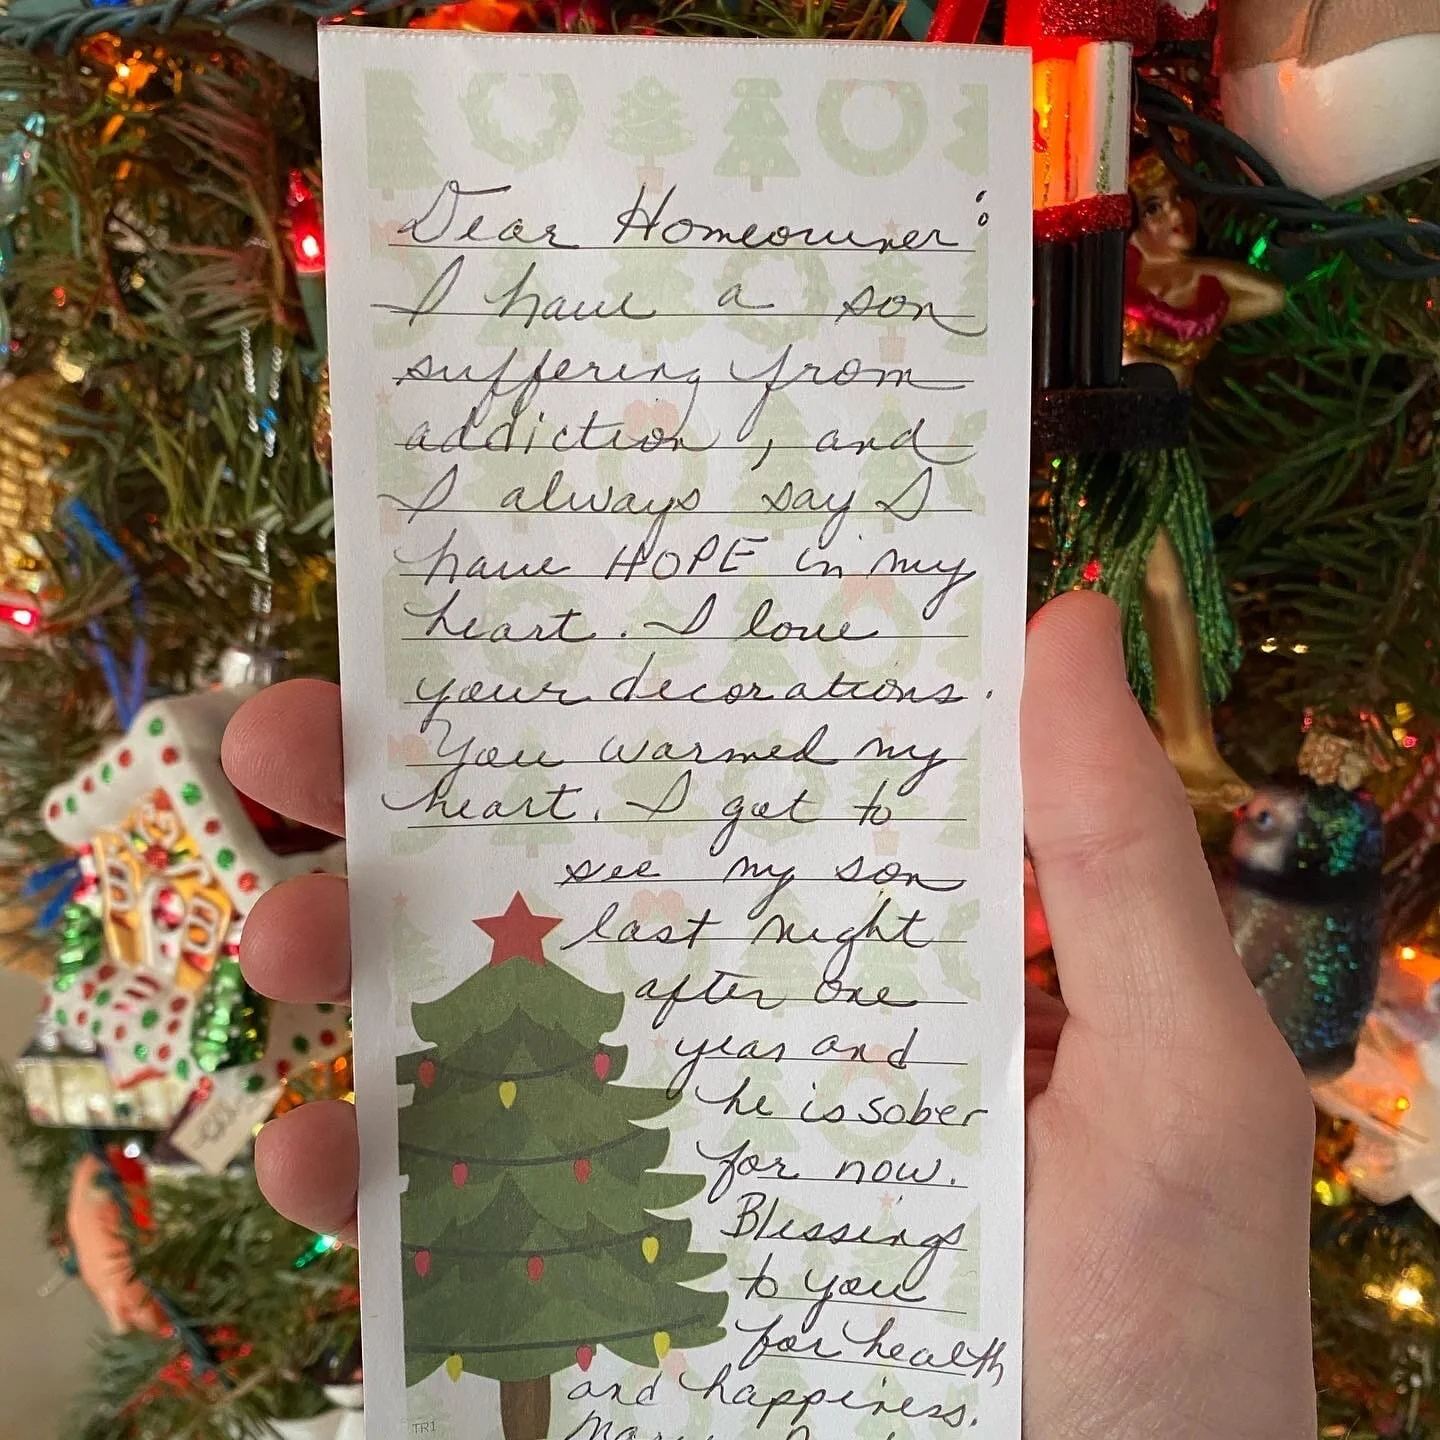 Dear Homeowner:
I have a son
suffering from
addiction, and
I always say I
have HOPE in my
heart. I love
your decorations.
You warmed my
heart. I got to
see my son
last night
after one
year and
he is sober
for now.
Blessings
to you
for health
and happiness.
TR1